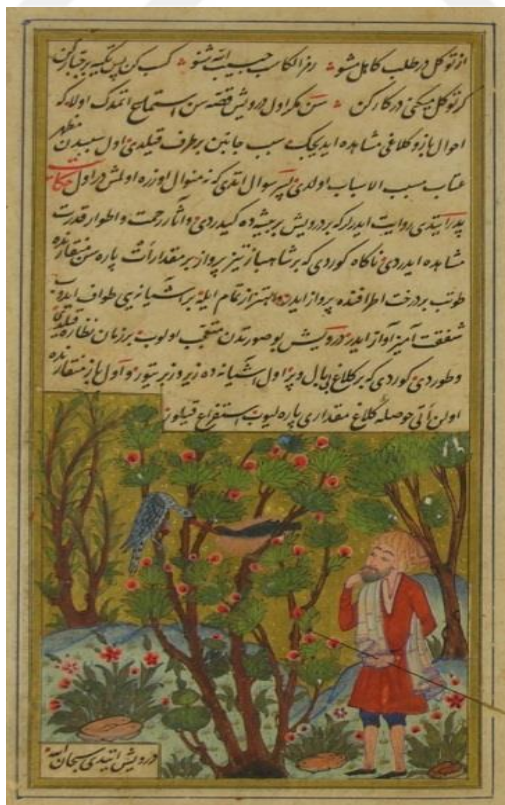 از توکل در طلب کاهل مشو رمز الکاسب حبیب الله شنو کسب کن پس تکیه بر جبار کن
گر توکل میکنی در کار کن سن مکر اول درویش قصه سن استماع اتمدک اولا که
احوال باز و کلاغی مشاهده ایدیجک سبب جانبن برطرف قیلدی اول سببدن مظهر
عتاب مسبب الاسباب اولدی پسر سوال ایتدی که نه منوال اوزره اولمش در اول حکایت
پدر ایتدی روایت ایدرلر که بر درویش بر بیشه ده کیدردی و آثار رحمت و اطوار قدرت
مشاهده ایدردی ناکاه کوردی که بر شاهباز تیز پرواز بر مقدار ات پاره سن منقارنده
طوتب بر درخت اطرافنده پرواز ایدر و اهتزاز تمام ایله بر آشیانه یی طواف ایدب
شفقت آمیز آواز ایدر درویش بو صورتدن متعجب اولوب بر زمان نظاره قیلدی
و طوردی کوردی که بر کلاغ بی بال و پر اول آشیانه ده زیر و زبر یتور و اول باز منقارنده
اولن اتی حوصله کلاغ مقداری پاره لیوب استفراغ قیلور
درویش ایتدی سبحان الله